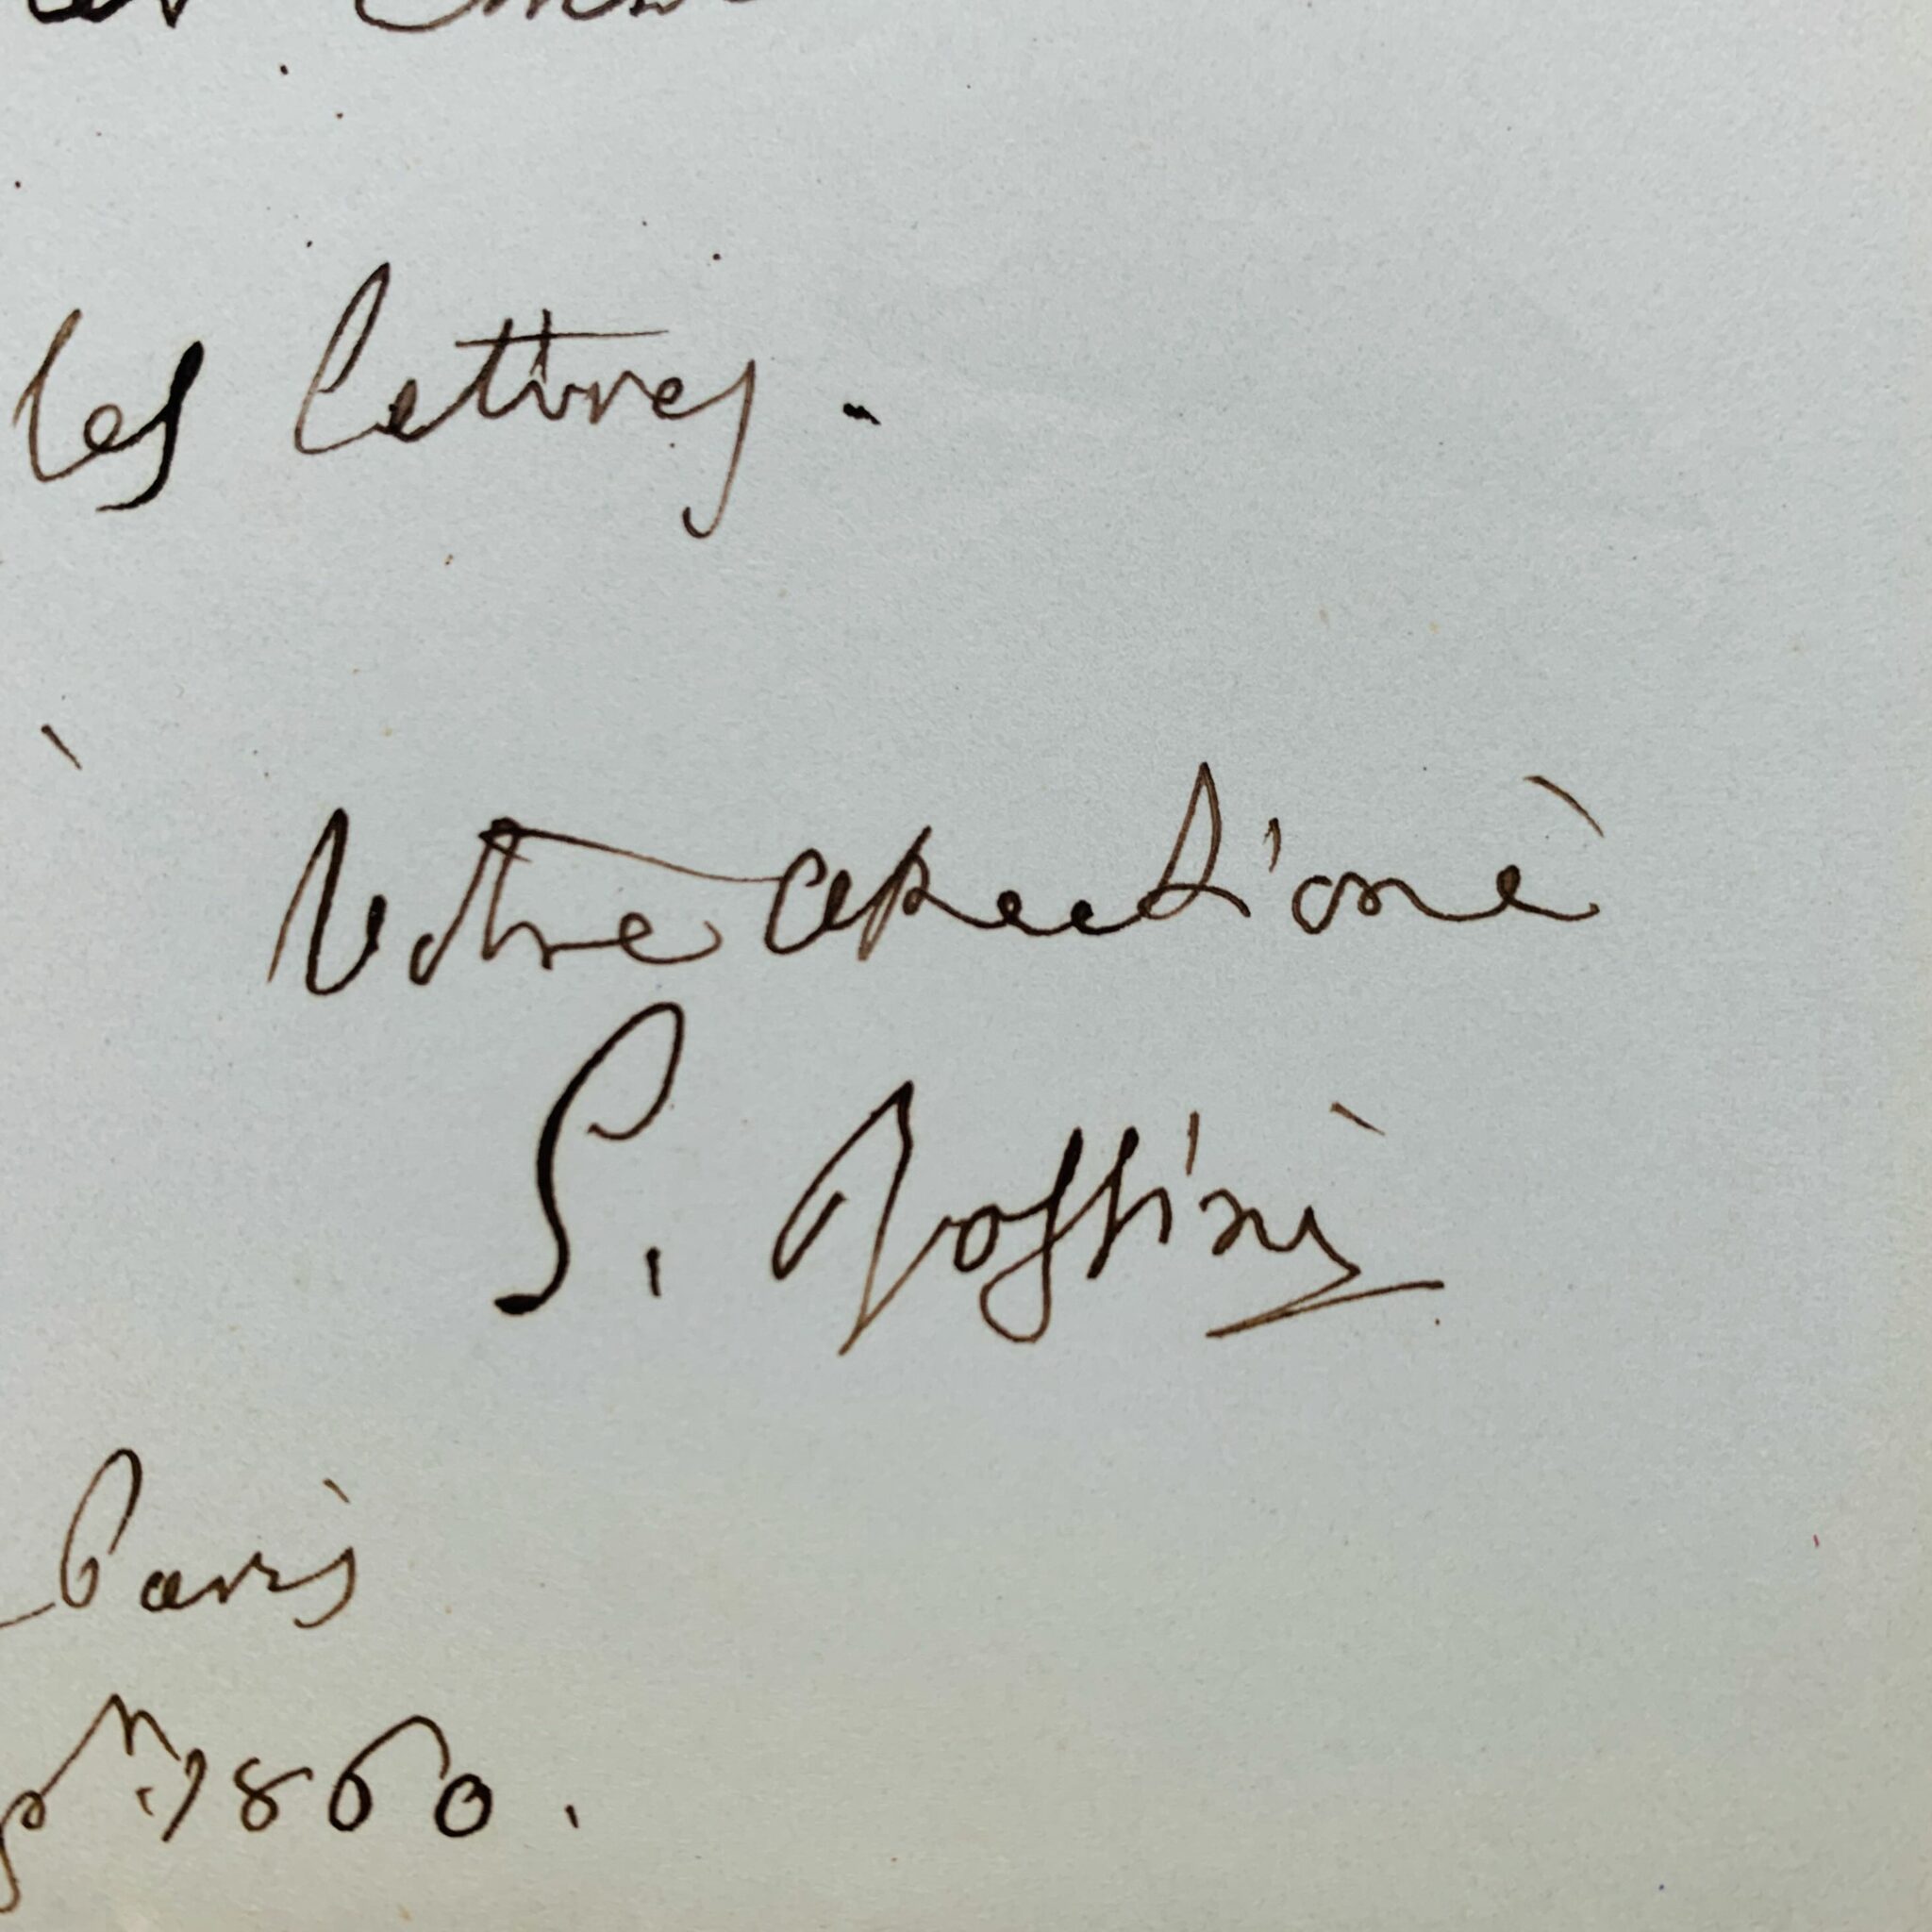 les lettres.
Votre affectionè
G. Rossini
Paris
1860.